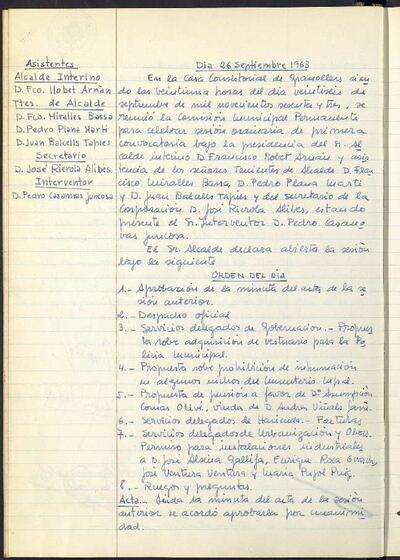 Asistentes
Alcalde Interino
D. Fco. Llobet Arnán
Ttes. de Alcalde
D. Fco. Miralles Bassa
D. Pedro Plana Martí
D. Juan Balcells Tapies
Secretario
D. José Rierola Alibés
Interventor
D. Pedro Casanovas Juncosa
Dia 26 Septiembre 1963
En la Casa Consistorial de Granollers sien
do las veintiuna horas del día veintiseis de
septiembre de mil novecientos sesenta y tres, se
reunió la Comisión Municipal Permanente
para celebrar sesión ordinaria de primera
convocatoria bajo la presidencia del Sr. Al
calde interino D. Francisco Llobet Arnán y asis
tencia de los señores Tenientes de Alcalde D. Fran
cisco Miralles Bassa, D. Pedro Plana Martí
y D. Juan Balcells Tapies y del Secretario de la
Corporación D. José Rierola Alibes, estando
presente el Sr. Interventor D. Pedro Casano
vas Juncosa.
El Sr. Alcalde declara abierta la sesión
bajo la siguiente
ORDEN DEL DIA
1.- Aprobación de la minuta del acta de la se
sión anterior.
2.- Despacho oficial
3.- Servicios delegados de Gobernación.- Propues
ta sobre adquisición de vestuario para la Po
licia Municipal.
4.- Propuesta sobre prohibición de inhumación
en algunos nichos del Cementerio Mpal.
5.- Propuesta de pensión a favor de Dª Asumpción
Comas Olivé, viuda de D. Andres Viñals
6.- Servicios delegados de Hacienda.- Facturas
7.- Servicios delegados de Urbanización y Obras.
Permiso para instalaciones industriales
a D. José Alsina Gallifa, Enrique Roca Garcia,
José Ventura Ventura y Maria Pujol Puig.
8.- Ruegos y preguntas.
Acta.- Leida la minuta del acta de la sesión
anterior se acordó aprobarla por unanimi
dad.